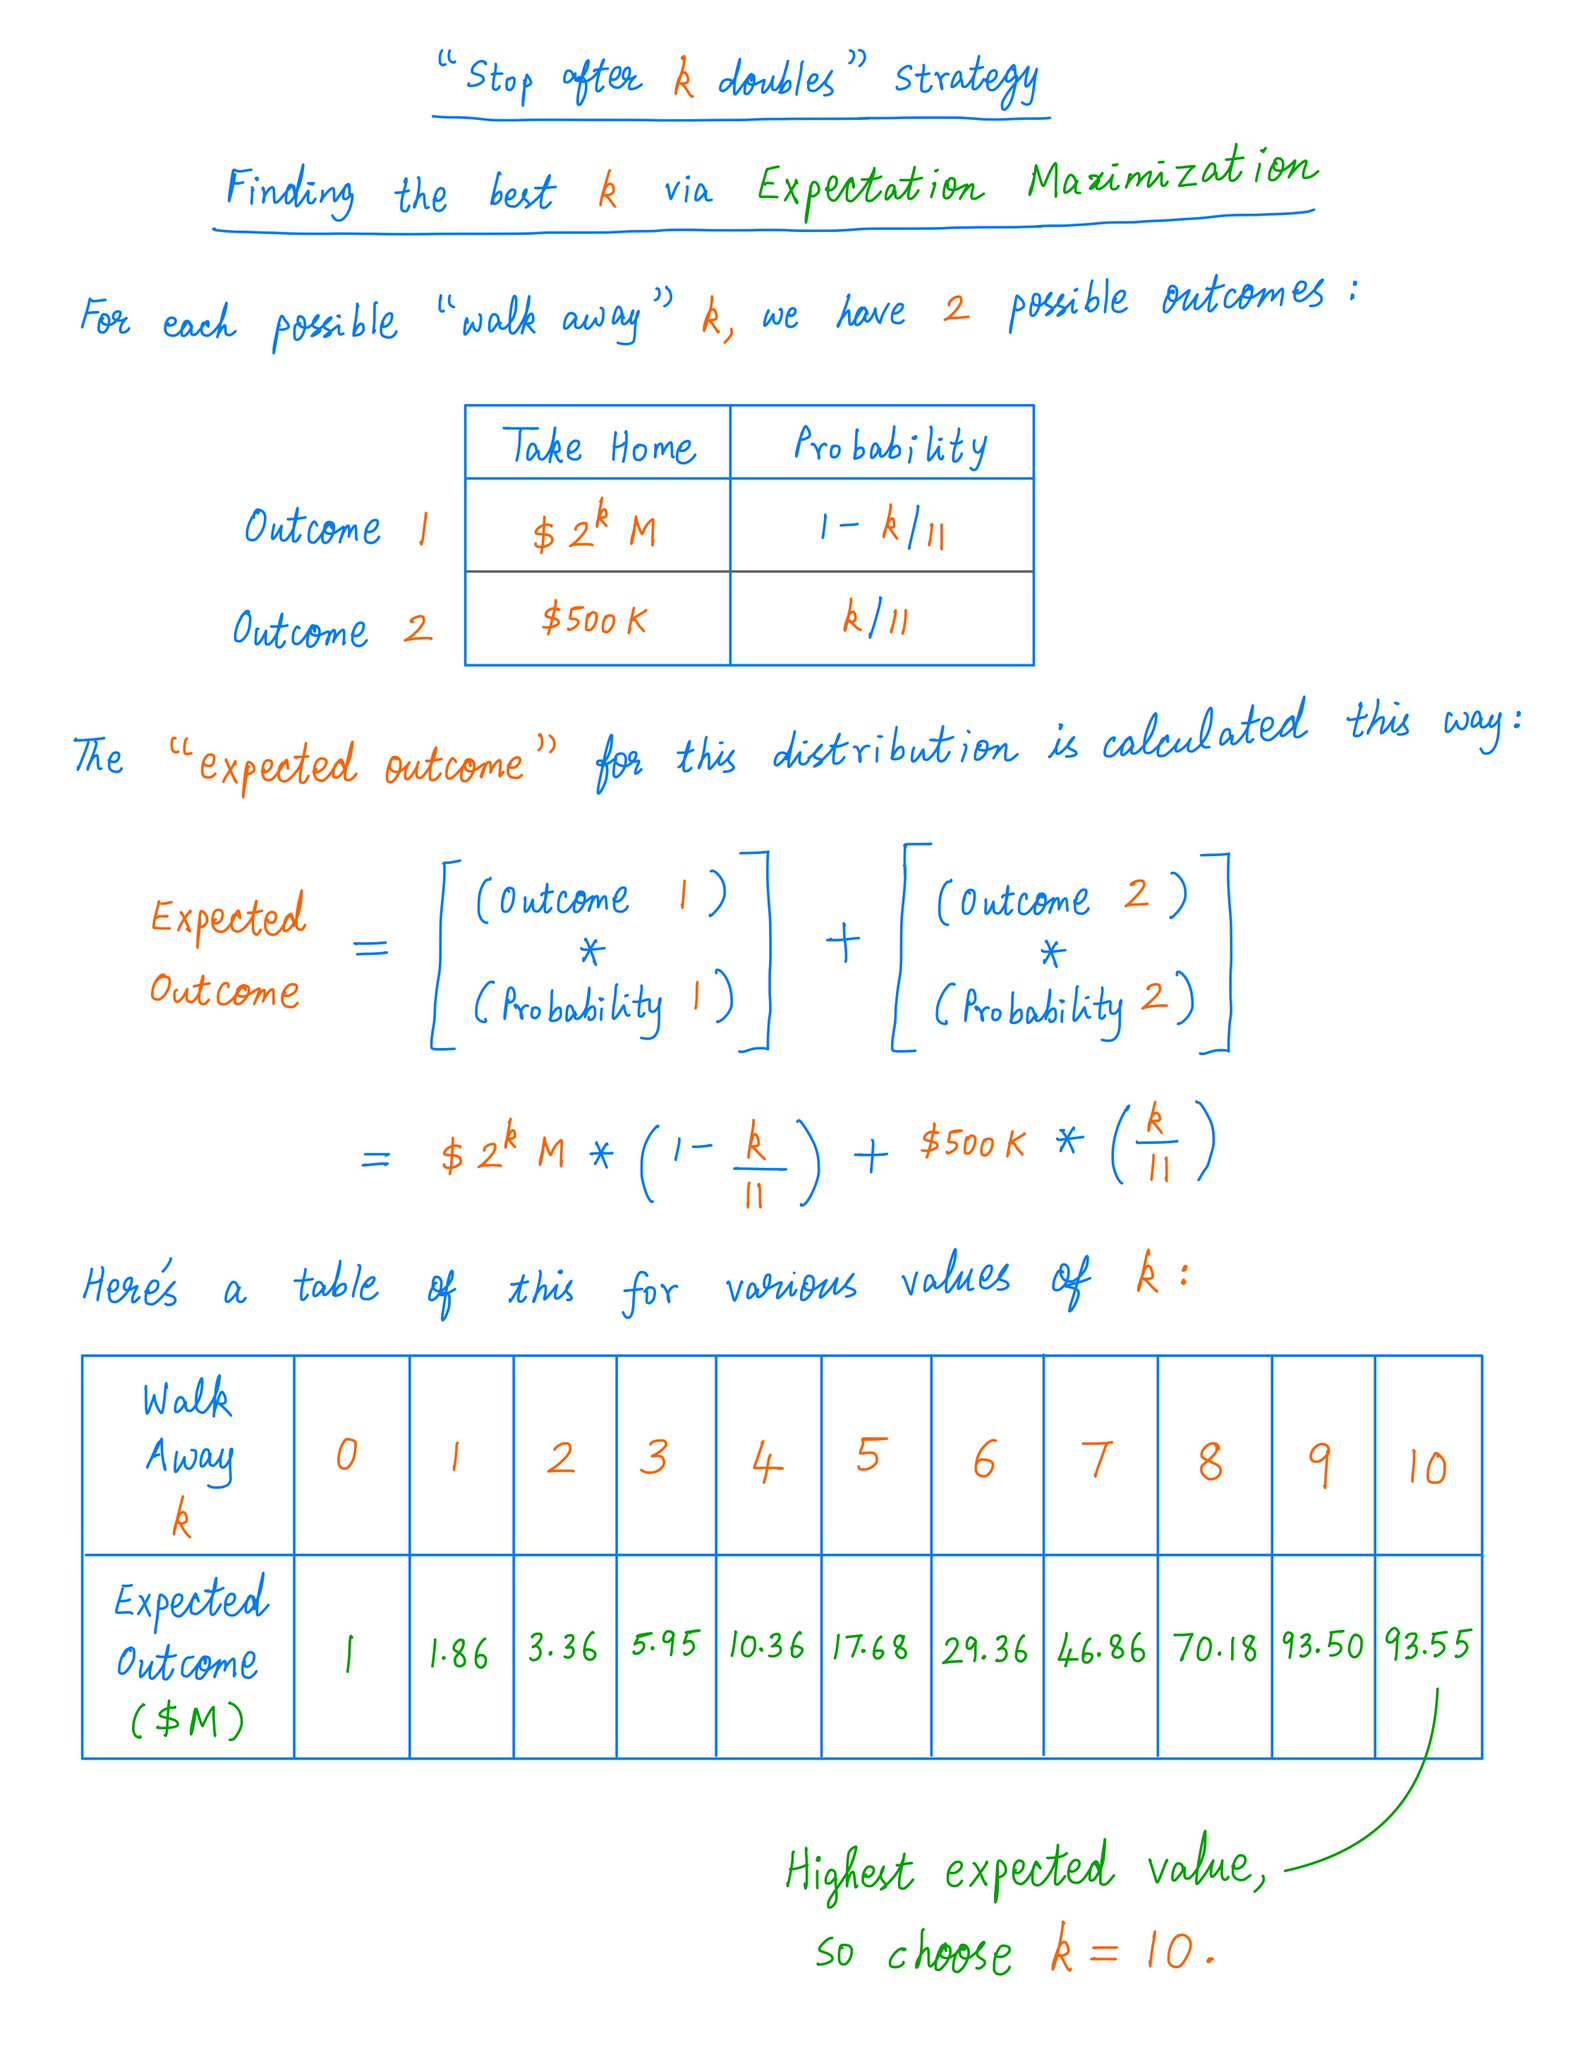 “Stop after k doubles” Strategy
Finding the best k via Expectation Maximization
For each possible “walk away” k, we have 2 possible outcomes:
Take Home Probability
Outcome 1 $ 2^k M 1 - k/11
Outcome 2 $500 K k/11
The “expected outcome” for this distribution is calculated this way:
Expected Outcome = [(Outcome 1) * (Probability 1)] + [(Outcome 2) * (Probability 2)]
= $ 2^k M * (1 - k/11) + $500 K * (k/11)
Here's a table of this for various values of k:
Walk Away k 0 1 2 3 4 5 6 7 8 9 10
Expected Outcome ($M) 1 1.86 3.36 5.95 10.36 17.68 29.36 46.86 70.18 93.50 93.55
Highest expected value,
so choose k = 10.